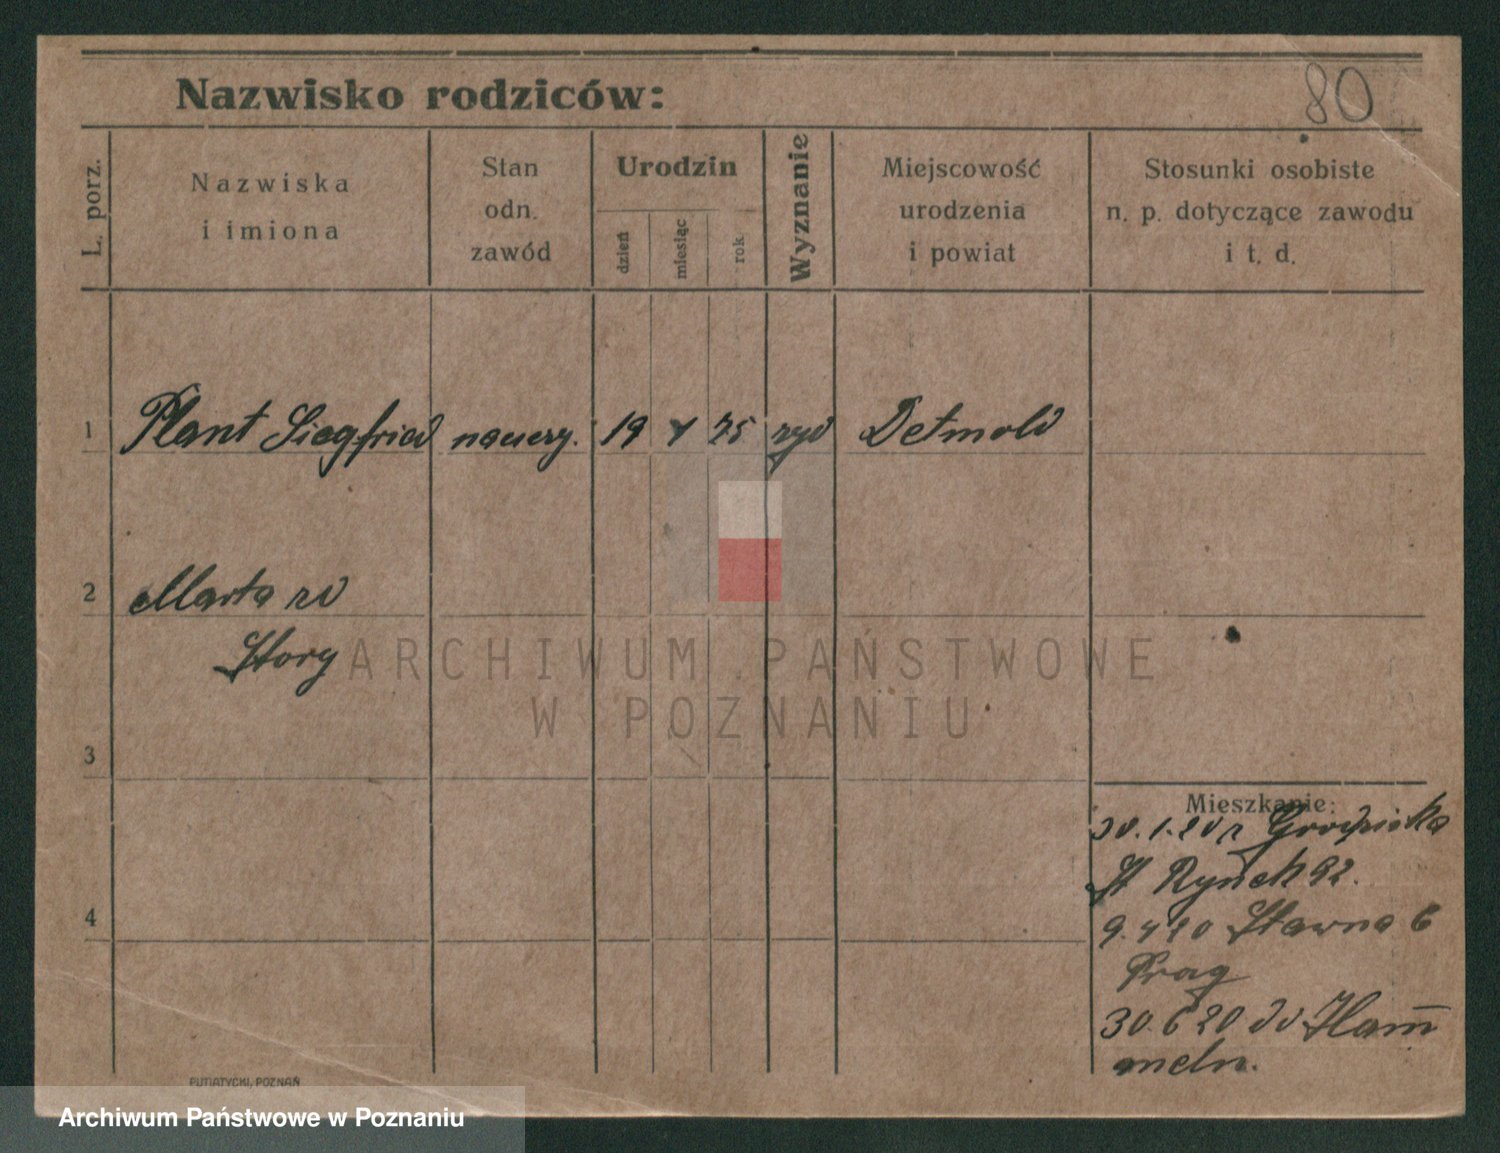 80
Nazwisko rodziców:
L. porz.
Nazwiska
i imiona
Stan
odn.
zawód
Urodzin
dzień
miesiąc
rok
Wyznanie
Miejscowość
urodzenia
i powiat
Stosunki osobiste
n. p. dotyczące zawodu
i t. d.
1 Plant Siegfried naucz. 19 4 75 żyd Detmold
2 Marta zd
Story
ARCHIWUM PAŃSTWOWE
W POZNANIU
3
Mieszkanie:
30.1.20 z Grodziska
St Rynek 92.
4
9.4 20 Stawna 6
Prag
30.6 20 do Ham
meln.
PUTIATYCKI, POZNAŃ
Archiwum Państwowe w Poznaniu